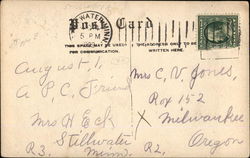 STILLWATER, MINN.
5 PM
Post Card
THIS SPACE MAY BE USED FOR COMMUNICATION.
THE ADDRESS ONLY TO BE WRITTEN HERE.
August 1,
A P.C. Friend
Mrs H Eck
Stillwater
R3. Minn
Mrs C. V. Jones,
Roy 152
Milwaukee
R2, Oregon